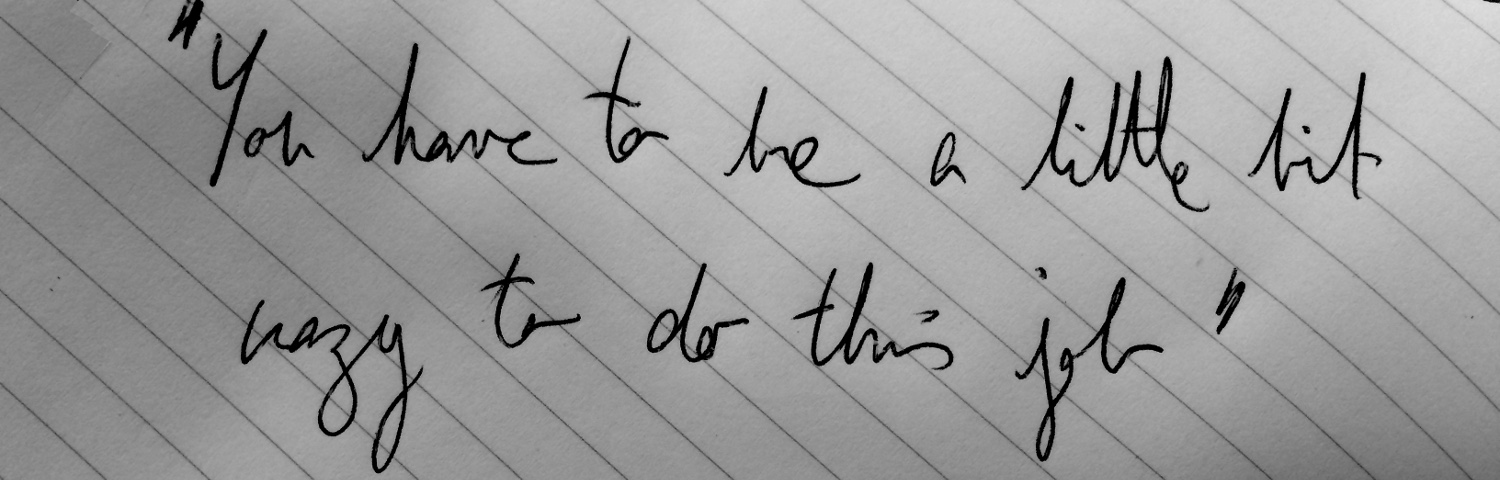 "You have to be a little bit
crazy to do this job"